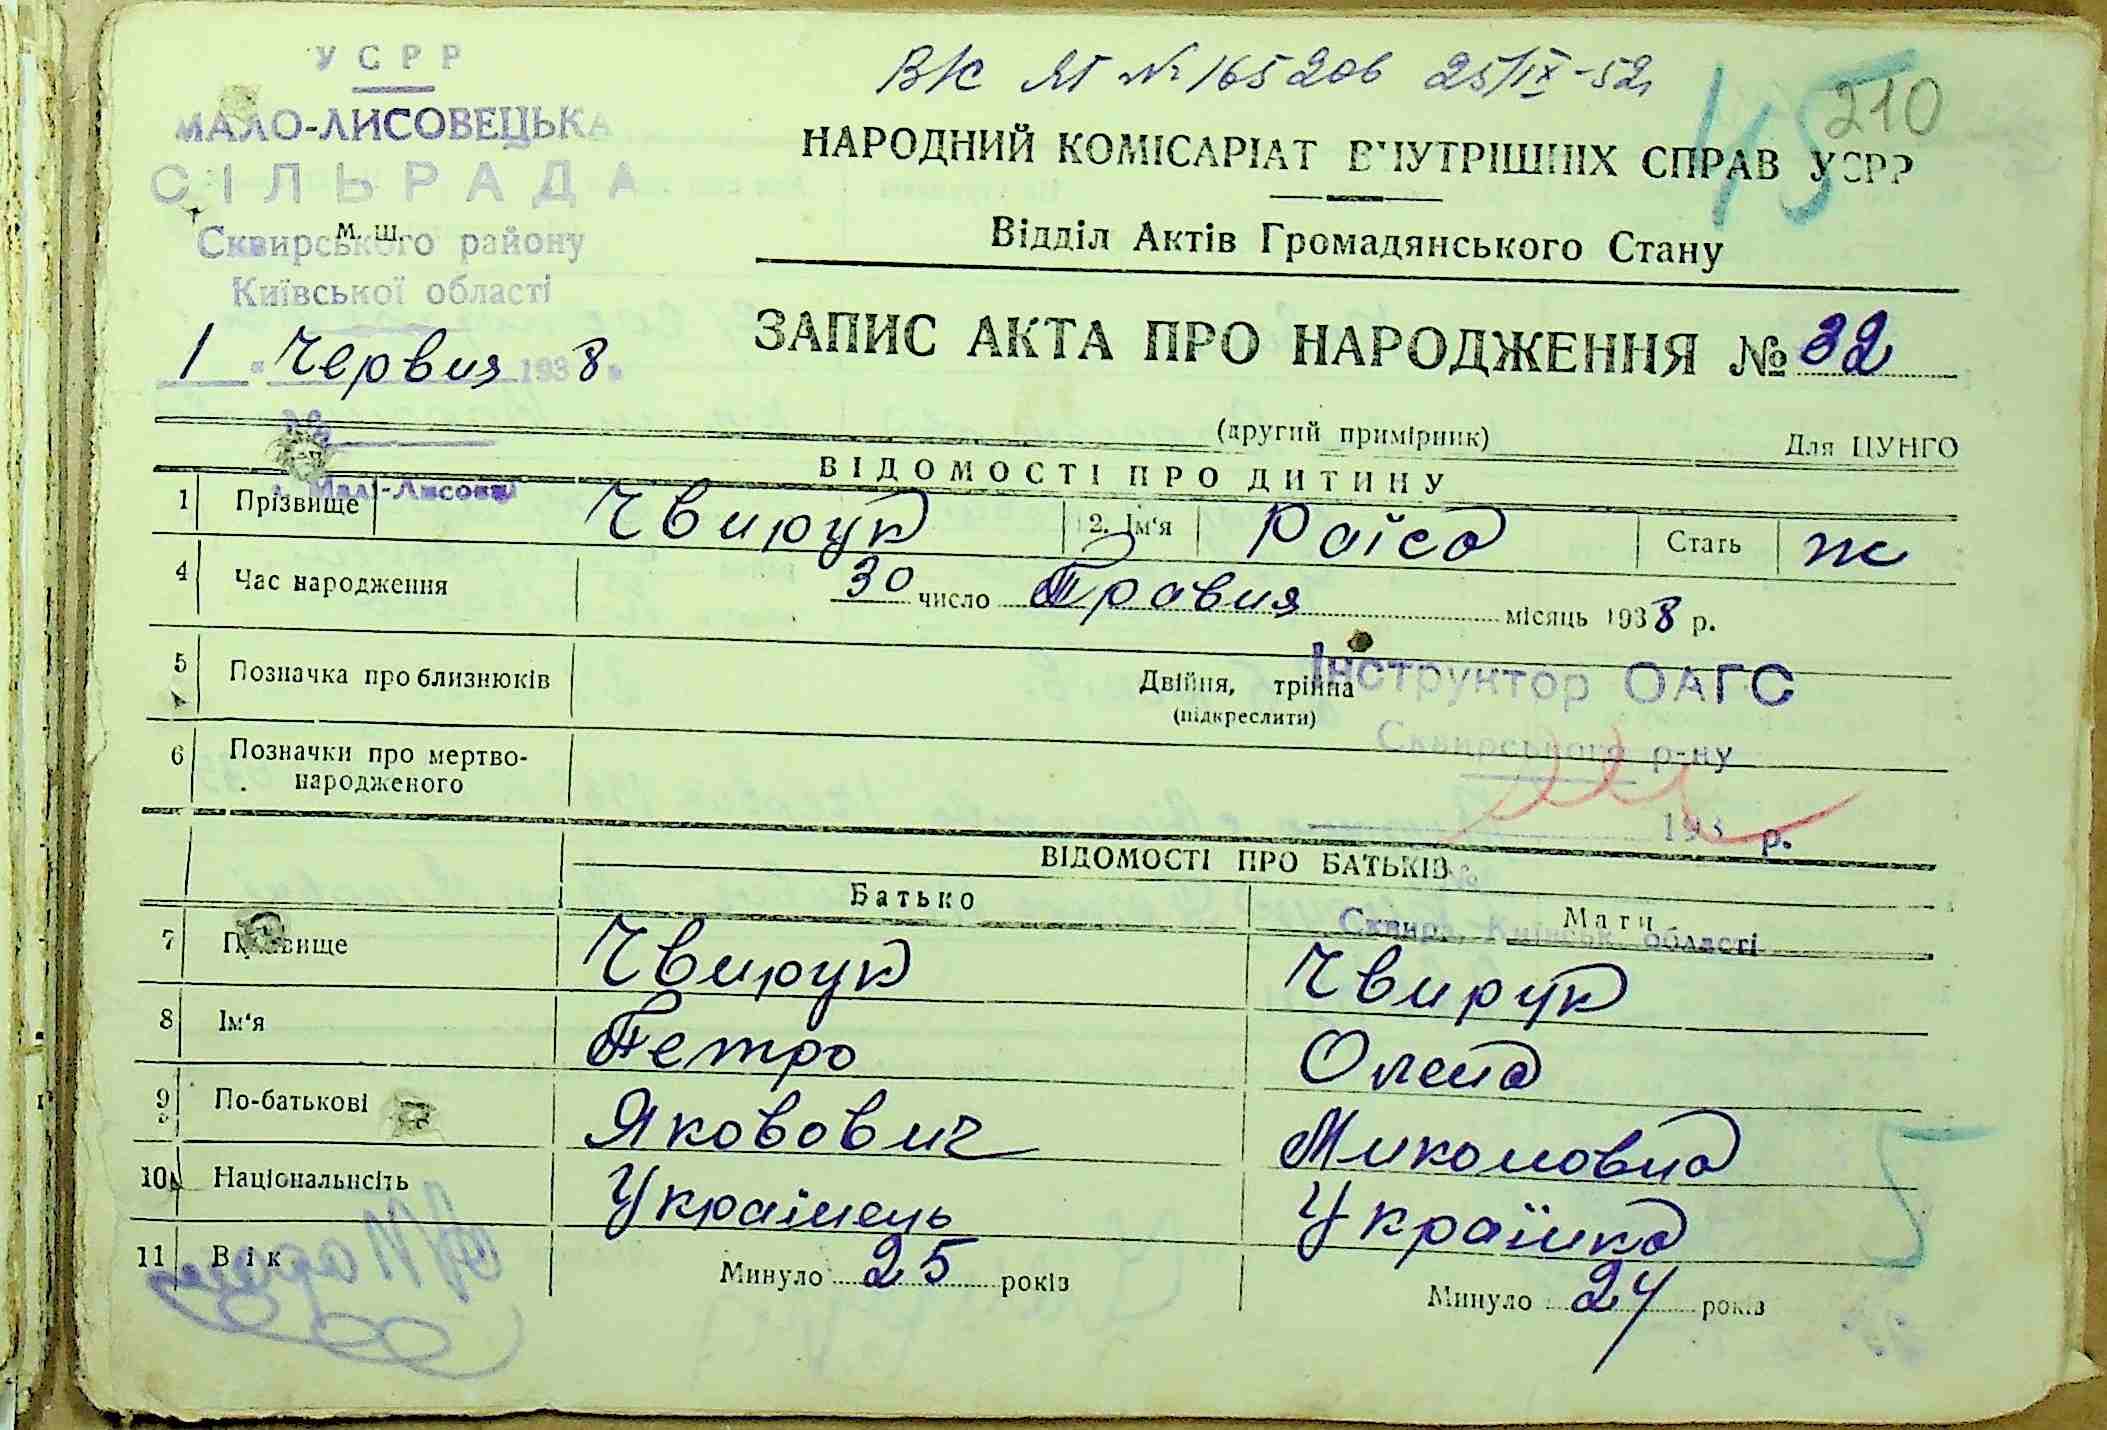 УСРР
МАЛО-ЛИСОВЕЦЬКА
СІЛЬРАДА
М. Ш.
Сквирського району
Київської області
1 " Червня 1938 р.
32
с. Малі-Лисовці
ВК ЯГ № 165206 25/IX-52
45
210
НАРОДНИЙ КОМІСАРІАТ ВНУТРІШНІХ СПРАВ УСРР
Відділ Актів Громадянського Стану
ЗАПИС АКТА ПРО НАРОДЖЕННЯ № 32
(другий примірник) Для ЦУНГО
ВІДОМОСТІ ПРО ДИТИНУ
1 Прізвище Чвирук 2. Ім'я Раїса Стать ж
4 Час народження 30 число Травня місяць 1938 р.
5 Позначка про близнюків Двійня, трійня
(підкреслити)
Інструктор ОАГС
Сквирського р-ну
193 р.
№
Сквира, Київськ. області
6 Позначки про мертво-
народженого
ВІДОМОСТІ ПРО БАТЬКІВ
Батько Мати
7 Прізвище Чвирук Чвирук
8 Ім'я Петро Олена
9 По-батькові Якович Миколовна
10 Національність Українець Українка
11 Вік Минуло 25 років Минуло 24 років
5